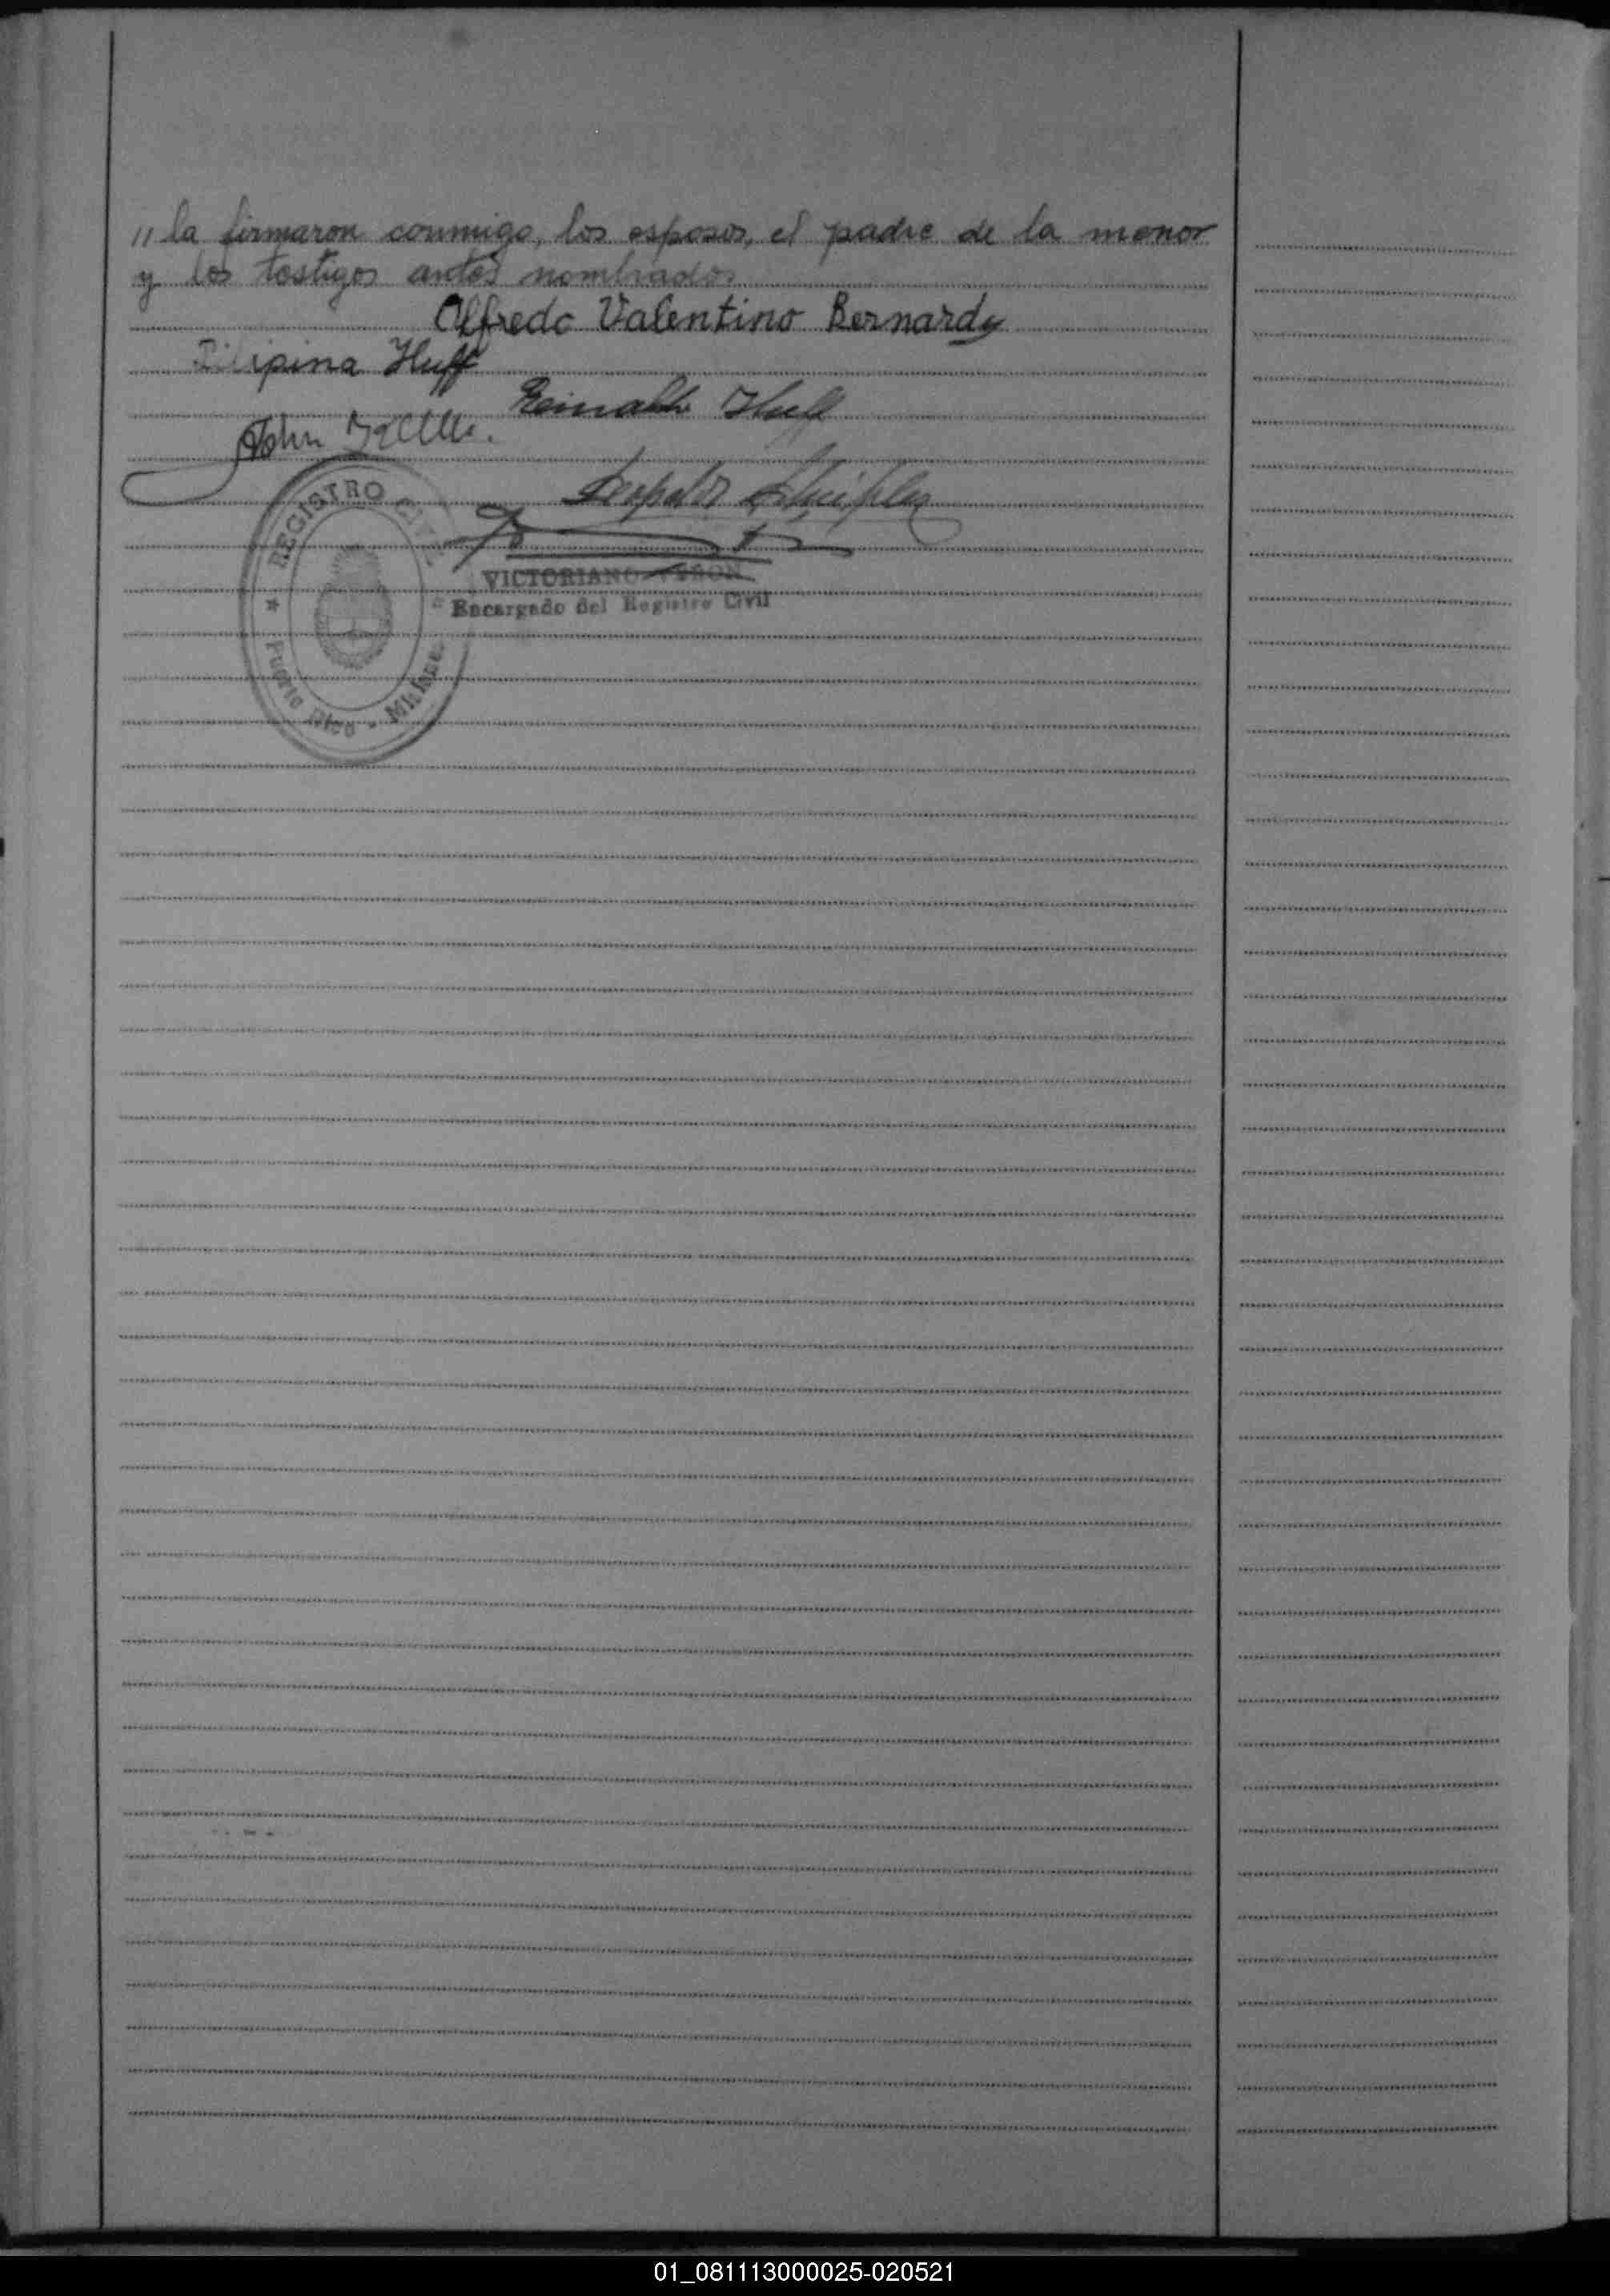 // la firmaron conmigo, los esposos, el padre de la menor
y los testigos antes nombrados
Alfredo Valentino Bernardy
Filipina Huff
Reinaldo Huff
John
Leopoldo
REGISTRO CIVIL
VICTORIANO VERON
Encargado del Registro Civil
Puerto Rico - Misiones
01_081113000025-020521